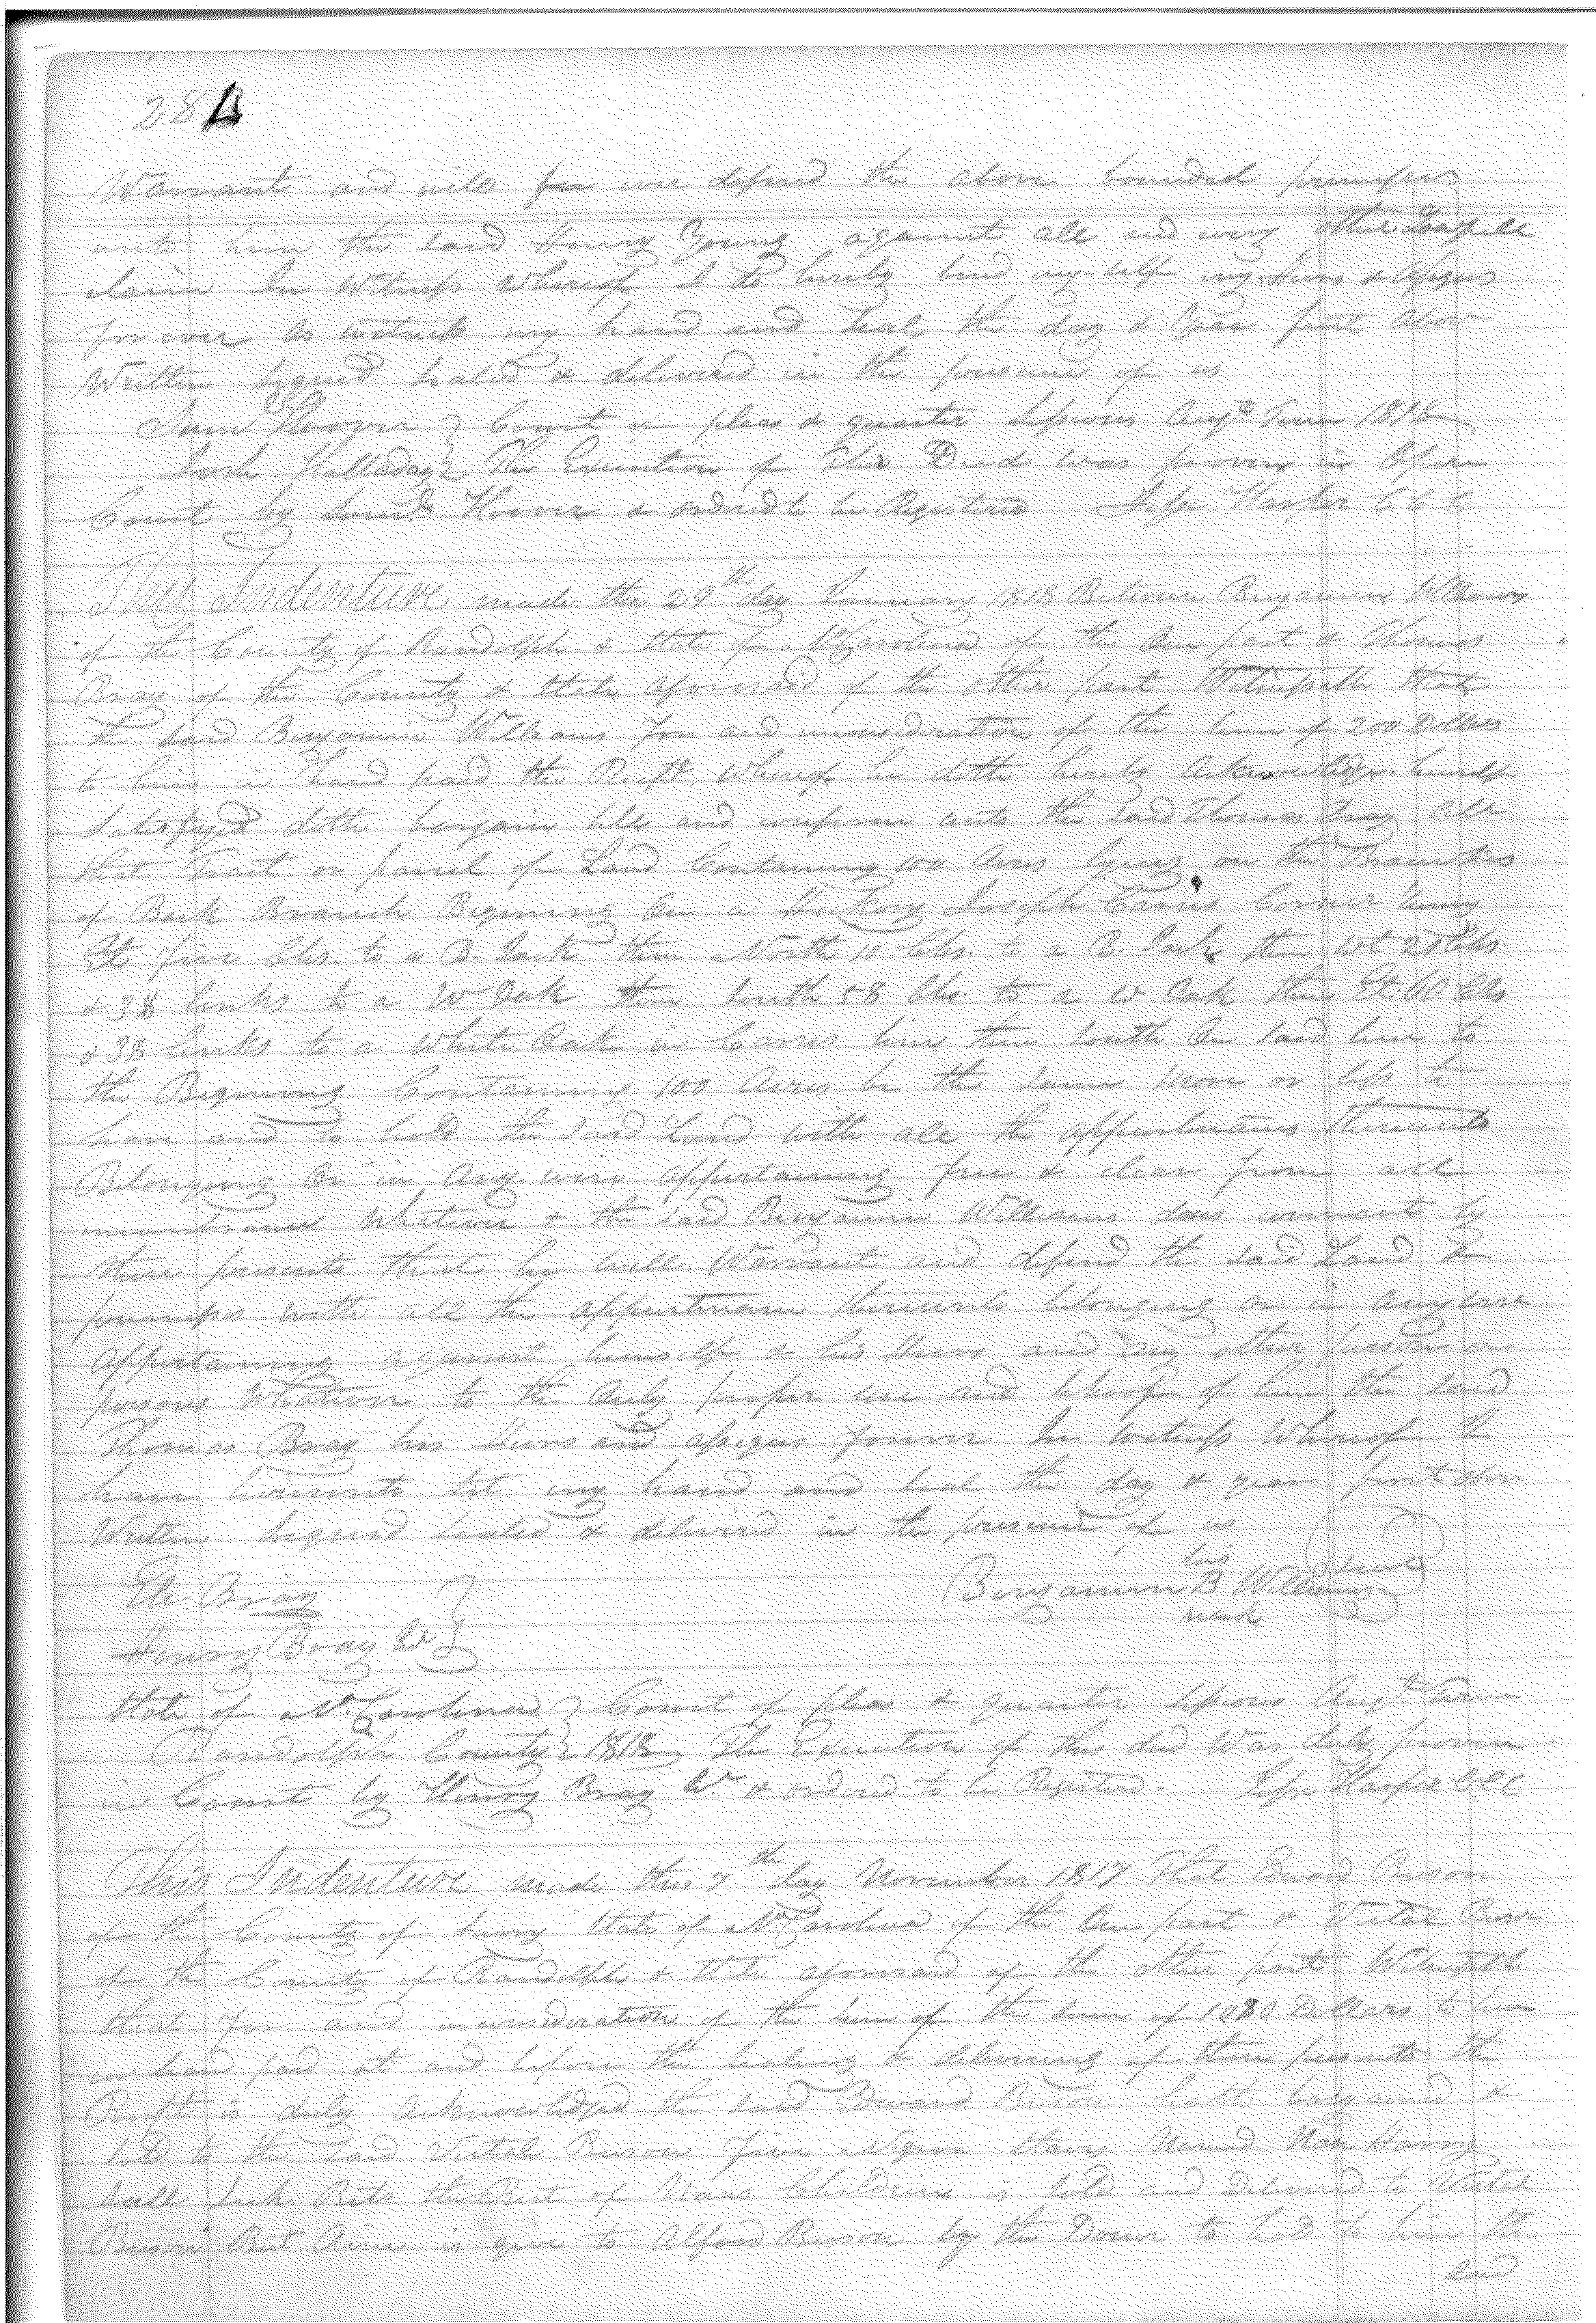 284
Warrant and will for ever defend the above bounded premises
unto him the said Henry Young against all and every other Lawfull
claim In Witness Whereof I do hereby bind my self my Heirs & Assigns
for ever As witness my hand and seal the day & Year first above
Written Signed Sealed & delivered in the presence of us
Court of pleas & quarter Sessions Augt Term 1818
The Execution of this Deed was proven in Open
Court by Hoover & ordered to be Registered Jesse Harper C C C
This Indenture made the 29th day January 1818 Between Benjamin Williams
of the County of Randolph & State of N Carolina of the One part & Thomas
Bray of the County & State aforesaid of the other part Witnesseth that
the said Benjamin Williams For and inconsideration of the sum of 200 Dollars
to him in hand paid the Recpt. whereof he doth hereby Acknowledge himself
Satisfyed doth bargain sell and unto the said Thomas Bray all
that Tract or parcel of Land Containing 100 Acres lying on the Branches
of Branch Begining On a Hickory Joseph Corner
Et five Chs. to a B. Jack then North 10 Chs. to a B. Jack then Wt Chs
& 38 links to a W Oak then South 58 Chs. to a W Oak then Et. 60 Chs
& 38 links to a White Oak in line then South On said line to
the Begining Containing 100 Acres be the same more or less to
have and to hold the said Land with all the appurtenances thereunto
Belonging Or in Any wise appertaining free & clear from all
Whatever & the said Benjamin Williams does covenant by
these presents that he will Warrant and defend the said Land &
premises with all the appurtenances thereunto belonging or in any wise
appertaining against himself & his Heirs and any other person or
persons Whatever to the Only proper use and behoof of him the said
Thomas Bray his Heirs and assigns forever In Witness Whereof I
have hereunto Set my hand and seal the day & year first above
Written Signed Sealed & delivered in the presence of us
Eli Bray
his
Benjamin B Williams seal
mark
Henry Bray
State of N. Carolina Court of pleas & quarter Sessions Augt Term
Randolph County 1818 The Execution of this deed Was duly proven
in Court by Henry Bray & ordered to be Registered Jesse Harper C C C
This Indenture made this 7th day November 1817 That
of the County of Surry State of N Carolina of the One part &
of the County of Randolph & State aforesaid of the other part Witnesseth
that For and inconsideration of the sum of the sum of 1080 Dollars to him
in hand paid at and before the Sealing & delivering of these presents the
Recpt is duly Acknowledged the said hath bargained &
sold to the said Five Negro Named Nan
the Rest of Nans Children is Sold and Delivered to
But is give to Alford by the Doner to to him the
said